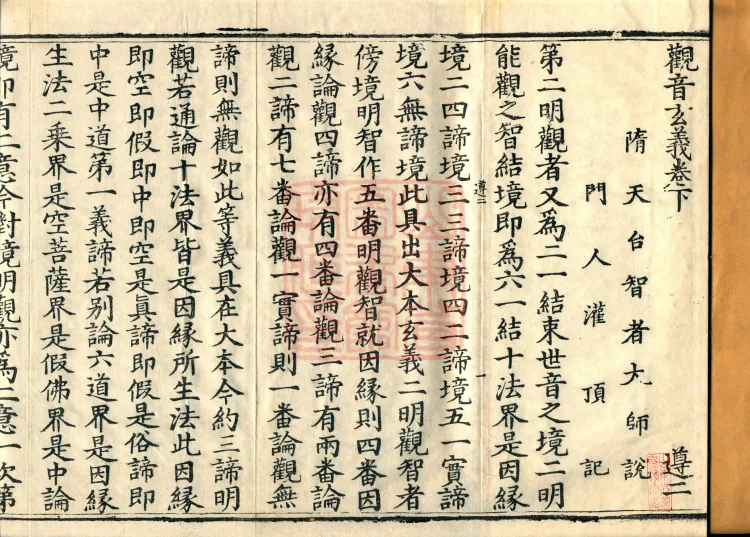 觀音玄義卷下
遵二
隋天台智者大師說
門人灌頂記
第二明觀者又爲二一結束世音之境二明
能觀之智結境即爲六一結十法界是因緣
遵二
一
境二四諦境三三諦境四二諦境五一實諦
境六無諦境此具出大本玄義二明觀智者
傍境明智作五番明觀智就因緣則四番因
緣論觀四諦亦有四番論觀三諦有兩番論
觀二諦有七番論觀一實諦則一番論觀無
諦則無觀如此等義具在大本今約三諦明
觀若通論十法界皆是因緣所生法此因緣
即空即假即中即空是眞諦即假是俗諦即
中是中道第一義諦若別論六道界是因緣
生法二乘界是空菩薩界是假佛界是中論
境卽有二意今對境明觀亦爲二意一次第